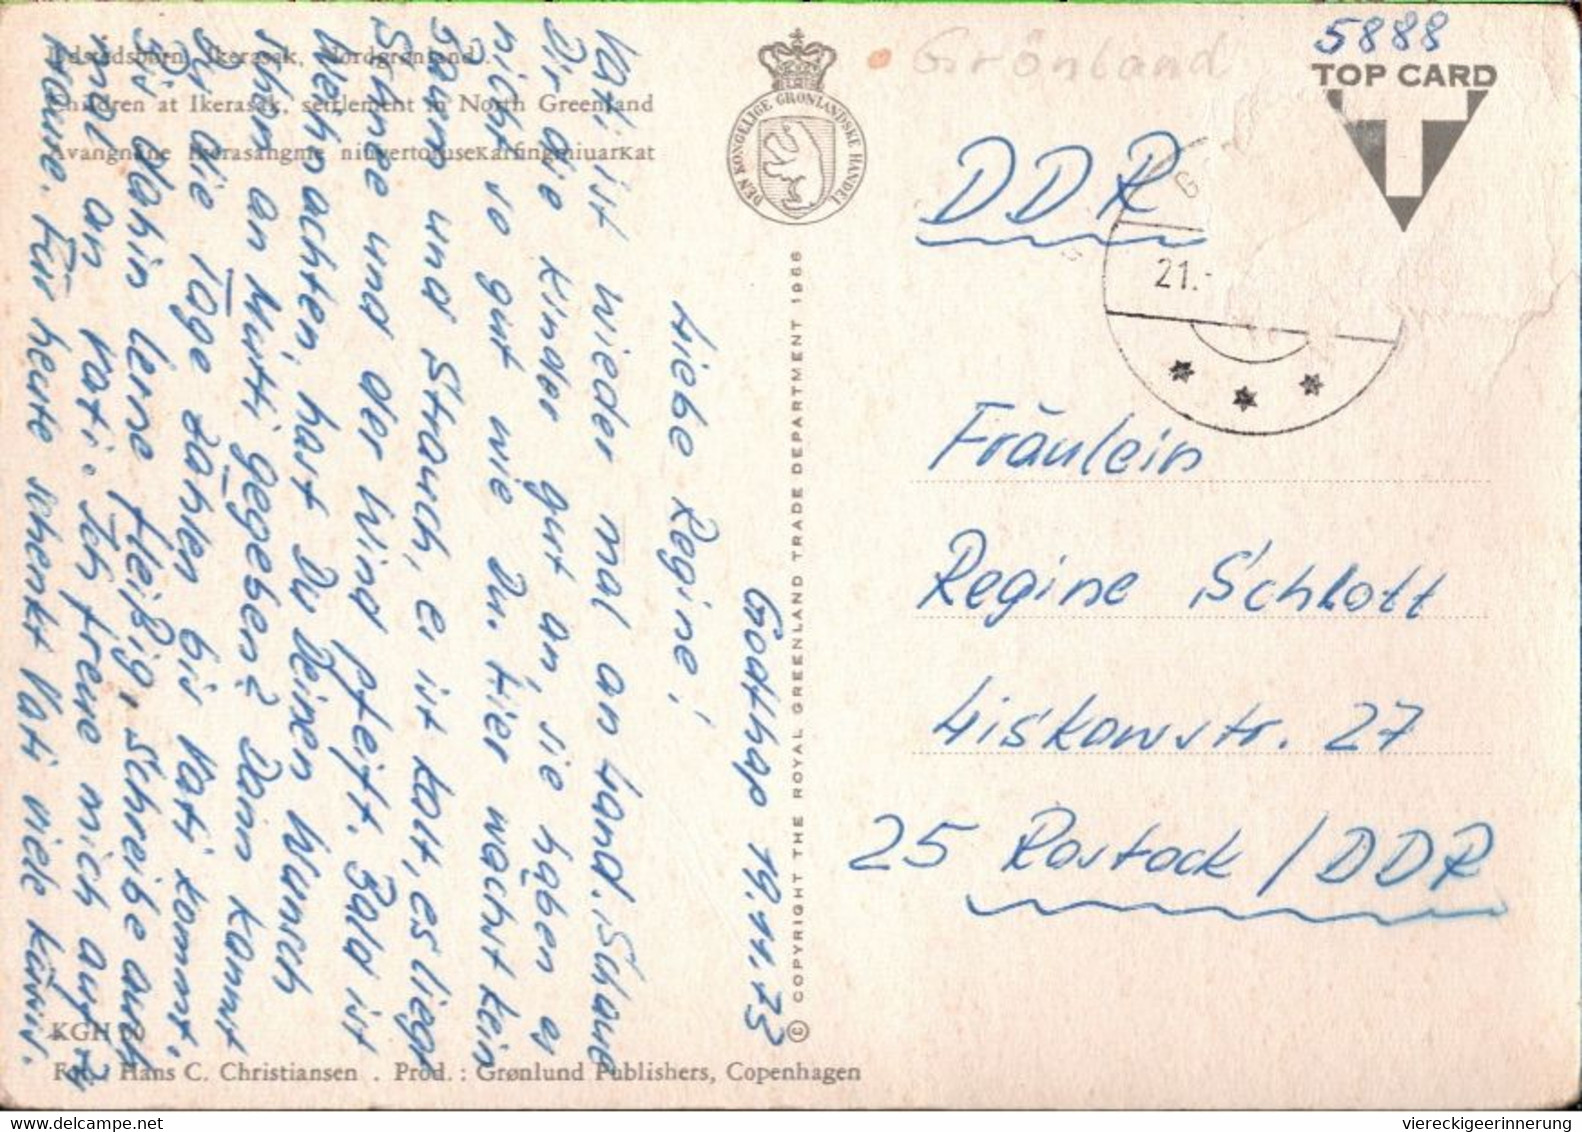 Udstedsbørn, Ikerasak, Nordgrønland.
Children at Ikerasak, settlement in North Greenland
KGH 60
Foto: Hans C. Christiansen . Prod.: Grønlund Publishers, Copenhagen
DEN KONGELIGE GRØNLANDSKE HANDEL
© COPYRIGHT THE ROYAL GREENLAND TRADE DEPARTMENT 1966
Godthap 19.11.73
Liebe Regine!
Vati ist wieder mal an Land. Schaue
Dir die Kinder gut an, sie haben es
nicht so gut wie Du. Hier wächst kein
Baum und Strauch, es ist kalt, es liegt
Schnee und der Wind pfeift. Bald ist
Weihnachten, hast Du Deinen Wunsch
schon an Mutti gegeben? Dann kannst
Du die Tage zählen bis Vati kommt.
Bis dahin lerne fleißig, schreibe auch
mal an Vati. Ich freue mich auf zu
Hause. Für heute schenkt Vati viele Küsse.
Grönland
5888
TOP CARD
T
21.-
DDR
Fräulein
Regine Schlott
Liskowstr. 27
25 Rostock / DDR
viereckigeerinnerung